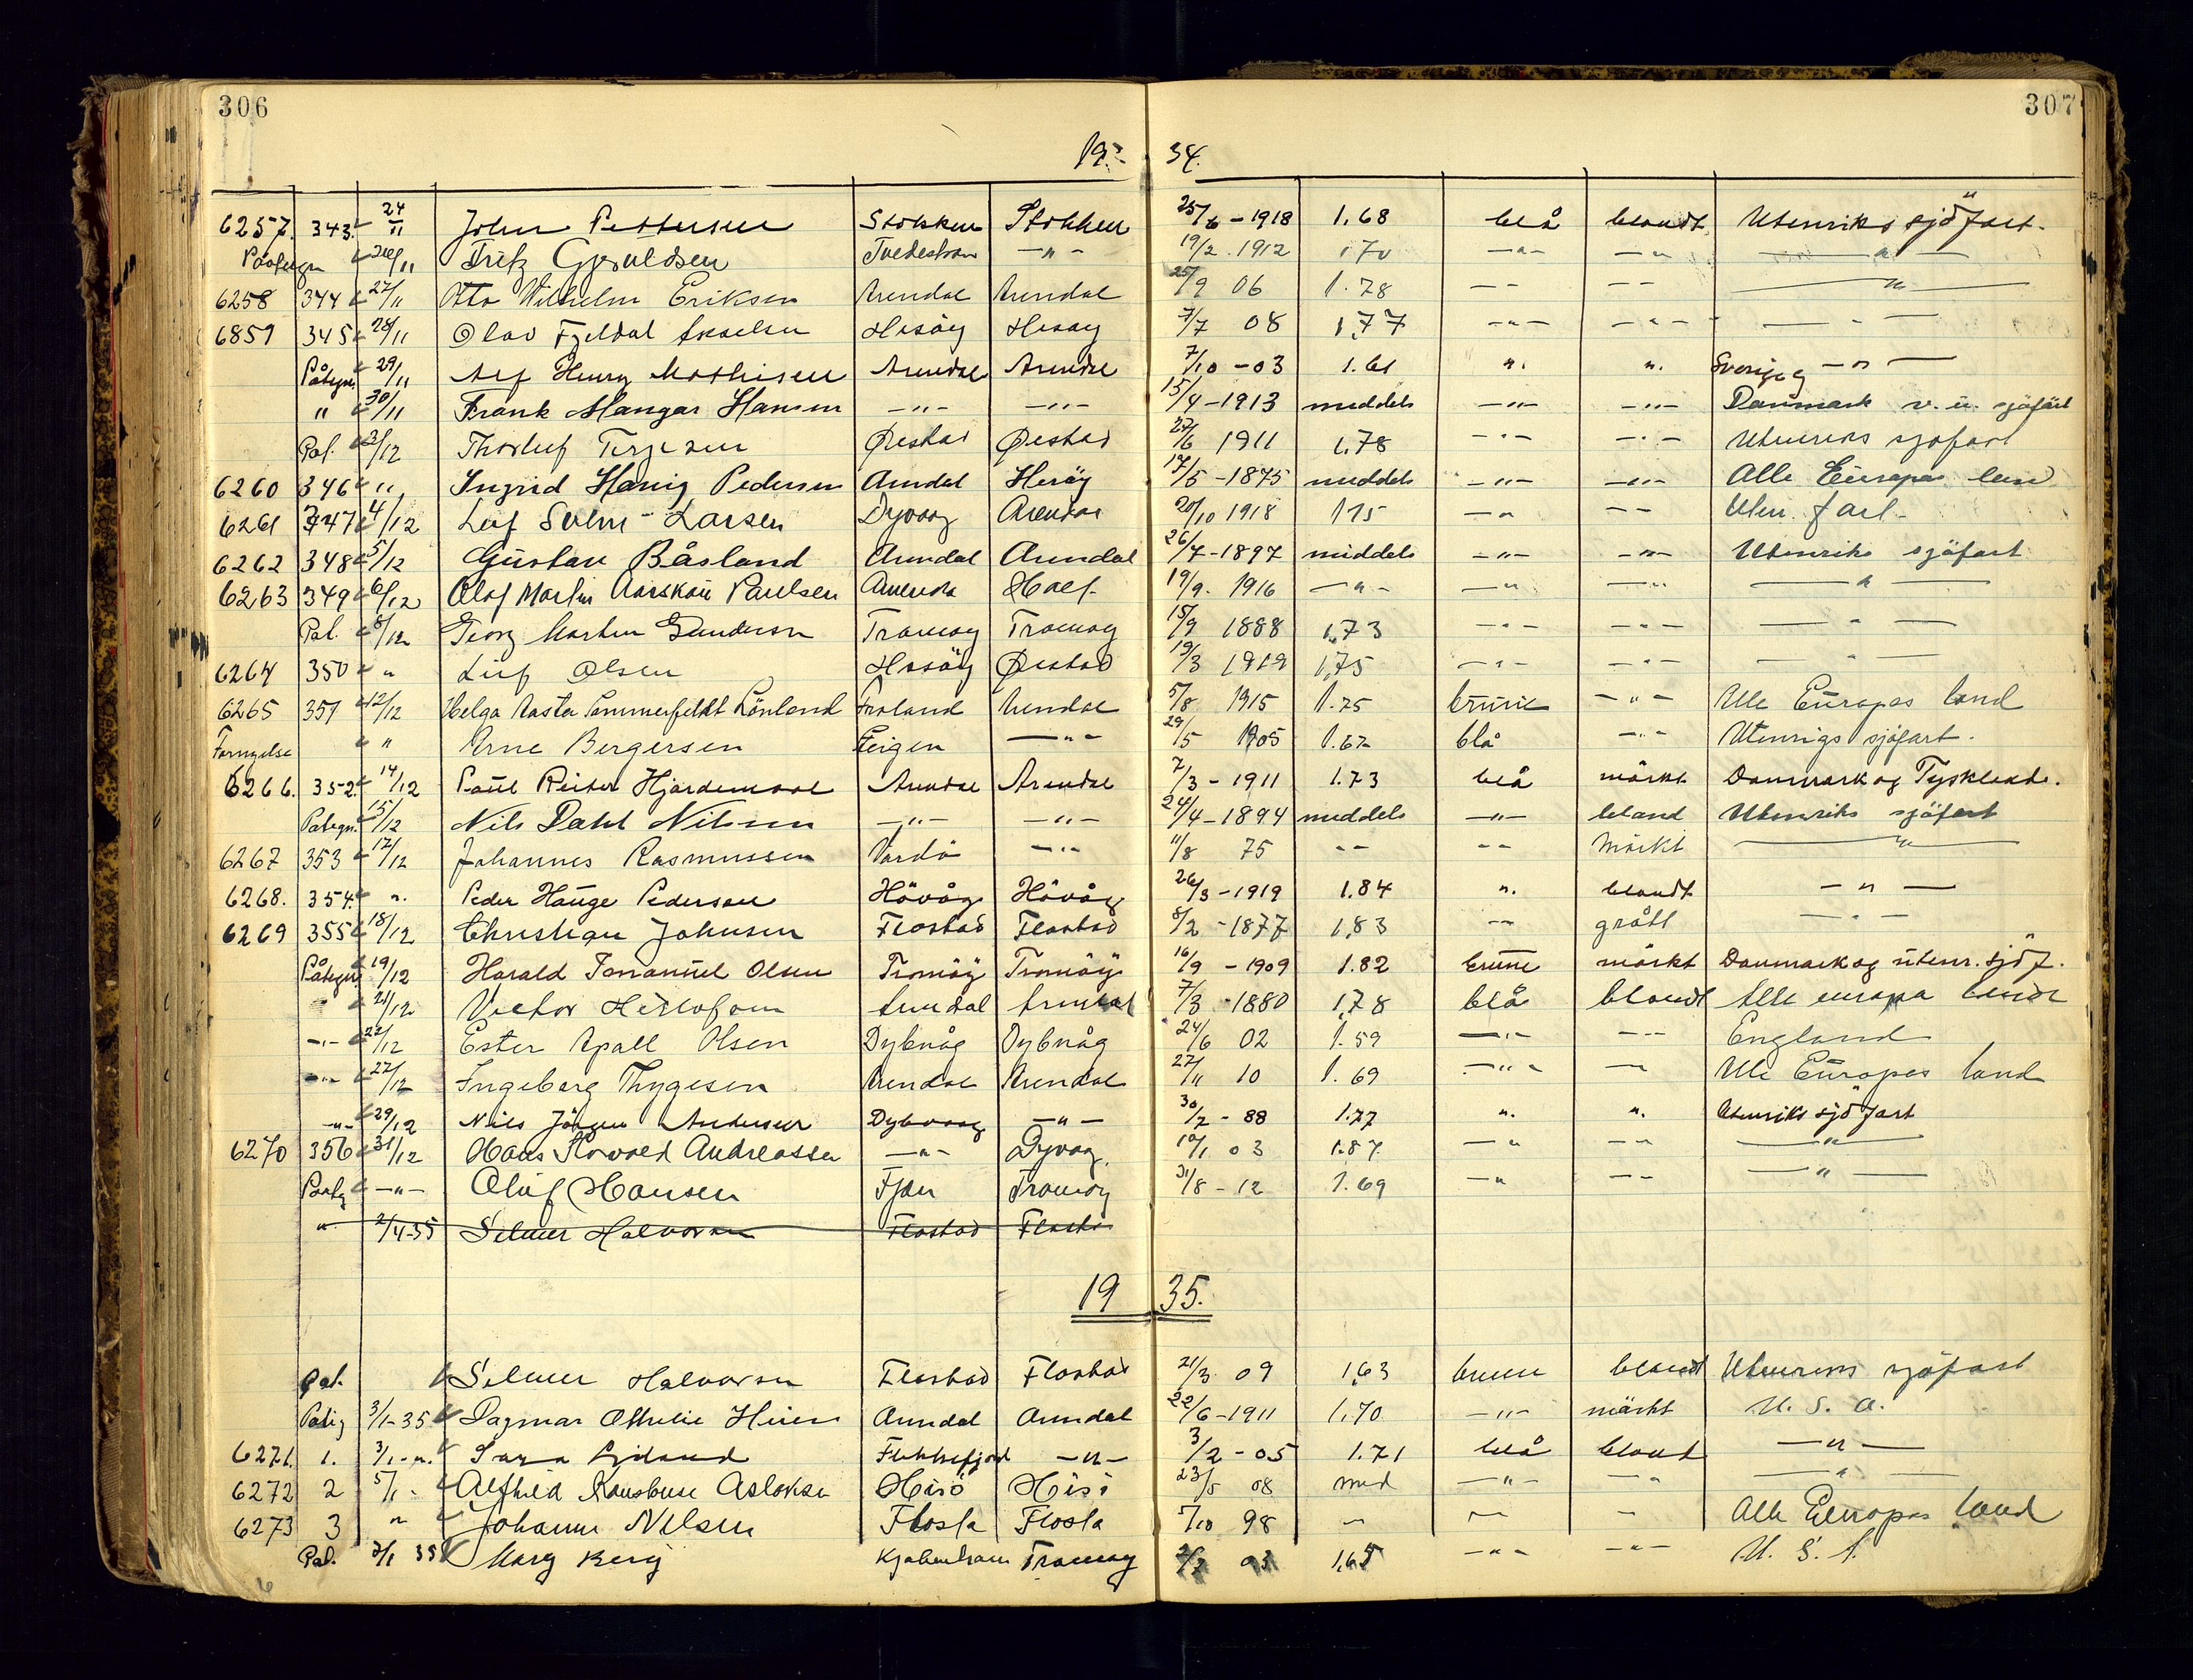 306
307
19 34.
6257. 343. 24/11 John Pettersen Stokken Stokken 25/6 - 1918 1.68 blå blondt Utenriks sjöfart.
Paategn 26/11 Fritz Gjeruldsen Tvedestran -"- 19/2. 1912 170 -"- -"- -"-
6258 344 27/11 Otto Wilhelm Eriksen Arendal Arendal 25/9 06 1.78 -- -- -"-
6859 345 28/11 Olav Fjeldal Akselsen Hisöy Hisöy 7/7 08 1,77 -"- -"- -"-
Påtegn. 29/11 Alf Henry Mathisen Arendal Arendal 7/10 - 03 1.61 ". ". Sverige og -"-
" 30/11 Frank Mangar Hansen -"- -"- 15/4 - 1913 middels -"- -"- Danmark v. u. sjöfart
Pat. 3/12 Thorleif Terjesen Øiestad Øiestad 27/6 1911 1,78 -"- -"- Utenriks sjøfart
6260 346 " Ingrid Pedersen Arndal Hisöy 17/5 - 1875 middels -"- -"- Alle Europas lan
6261 347 4/12 Leif Larsen Dyvaag Arendal 20/10 1918 175 -"- -- Uten. fart.
6262 348 5/12 Gustav Båsland Arendal Arendal 26/7 - 1897 middels -"- -"- Utenriks sjöfart
6263 349 6/12 Olaf Martin Aarskau Paulsen Arendal 19/9. 1916 -"- -"- -"- -"-
Pat. 8/12 Georg Marten Gundersen Tromøy Tromøy 15/9 1888 1,73 -"- -"- -"-
6264 350 " Leif Olsen Hisöy Øiestad 19/3 1919 1,75 -"- -"- -"-
6265 351 12/12 Helga Aasta Sommerfeldt Lönland Froland Arendal 5/8 1915 1.75 brune -"- Alle Europas land
Fornyelse " Arne Bergersen -"- 29/5 1905 1.62 blå -"- Utenrigs sjøfart.
6266. 352. 14/12 Paul Reiter Hjordemaal Arendal Arendal 7/3 - 1911 1.73 blå mörkt Danmark og Tyskland.
Pategn. 15/12 Nils Dahl Nilsen -"- -"- 24/4 - 1894 middels -"- bland Utenriks sjöfart
6267 353 17/12 Johannes Rasmussen Vardö -"- 11/8 75 -- -- Mörkt -"-
6268. 354. ". Peder Hauge Pedersen Hövåg Hövåg 26/3 - 1919 1.84 ". blondt -"-
6269 355 18/12 Christian Johnsen Flostad Flostad 8/2 - 1877 1,83 -- grått -"-
Påtegn 19/12 Harald Immanuel Olsen Tromöy Tromöy 16/9 - 1909 1.82 brune mörkt Danmark og utenr. sjöf.
" 21/12 Victor Herlofson Arendal Arendal 7/3 - 1880 1,78 blå blondt Alle europa lande
-"- 22/12 Ester Apall Olsen Dybvåg Dybvåg 24/6 02 1.59 -"- -- England
-"- 27/12 Ingeborg Thygesen Arendal Arendal 27/11 10 1.69 -"- -"- Alle Europas land
-"- 29/12 Nils Jörgen Andersen Dybvaag -"- 30/7 - 88 1.77 ". ". Utenriks sjöfart
6270 356 31/12 Hans Andreassen -"- Dyvag. 10/1 03 1.87. -"- -"- -"-
Paateg -"- Oluf Hansen Fjære Tromöy 31/8 - 12 1.69 -"- -- -"-
" 2/4-35 Selmer Halvorsen Flostad Flosta
19 35.
Pat. Selmer Halvorsen Flostad Flostad 21/3 09 1,63 brune blondt Utenriks sjøfart
Pateg 3/1-35 Dagmar Othilie Arendal Arendal 22/6 - 1911 1,70 -"- mörkt U. S. A.
6271. 1. 3/1 -". Flekkefjord -"- 3/2 - 05 1.71 blå blont -"-
6272 2 5/1 - Alfhild Aslaksen Hisö Hisö 23/5 08 mid -"- -"- -"-
6273 3 " Johanne Nilsen Flosta Flosta 5/10 98 -"- -"- - Alle Europas land
Pat. 7/1 35 Mary Berg Kjøbenhavn Tromøy 1,65 -"- -"- U. S. A.